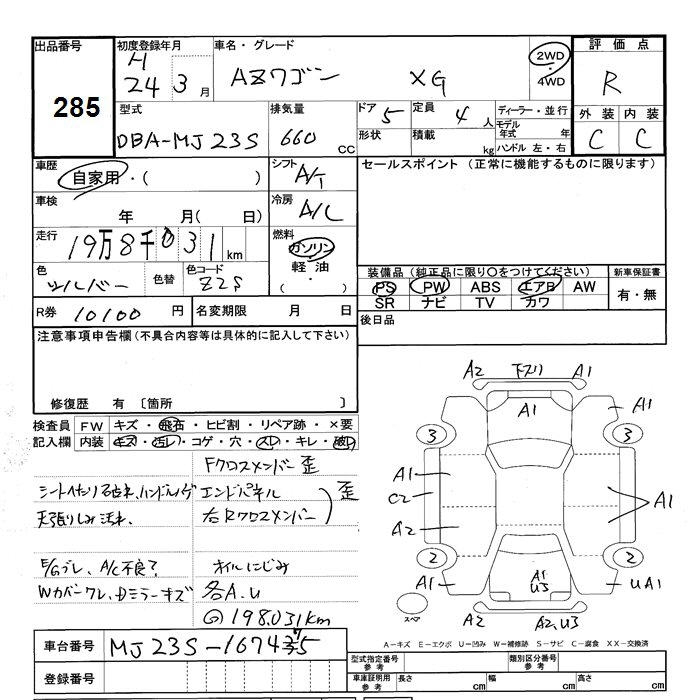 出品番号
285
初度登録年月
H 24 3 月
車名・グレード
AZワゴン XG
2WD
4WD
評価点
R
外装 内装
C C
型式
DBA-MJ23S
排気量
660 CC
ドア 5
定員 4 人
形状
積載 kg
ディーラー・並行
モデル年式 年
ハンドル 左・右
車歴
自家用・( )
シフト
A/T
セールスポイント (正常に機能するものに限ります)
車検
年 月( 日)
冷房
A/C
走行
19万8千031 km
燃料
ガソリン
軽油
・( )
色
シルバー
色替
色コード
Z2S
装備品(純正品に限り○をつけてください)
新車保証書
PS PW ABS エアB AW
SR ナビ TV カワ
有・無
R券 10100 円
名変期限 月 日
後日品
注意事項申告欄(不具合内容等は具体的に記入して下さい)
修復歴 有 〔箇所 〕
検査員 FW キズ・飛石・ヒビ割・リペア跡・×要
記入欄 内装 キズ・汚レ・コゲ・穴・スレ・キレ・破レ
Fクロスメンバー歪
エンドパネル
右Rクロスメンバー 歪
天張りしみ汚れ
E/Gブレ、A/C不良?
オイルにじみ
Wカバーワレ、Dミラーキズ
各A.U
◎198.031km
A2 下スリ A1
A1 A1
3 3
A1
C2
A1
A2
2 2
A1
A1
U3
UA1
スペア
A2 A2,U3
A－キズ E－エクボ U－凹み W－補修跡 S－サビ C－腐食 XX－交換済
車台番号
MJ23S-1674
登録番号
型式指定番号
参考
類別区分番号
参考
車庫証明用
参考
長さ cm
幅 cm
高さ cm